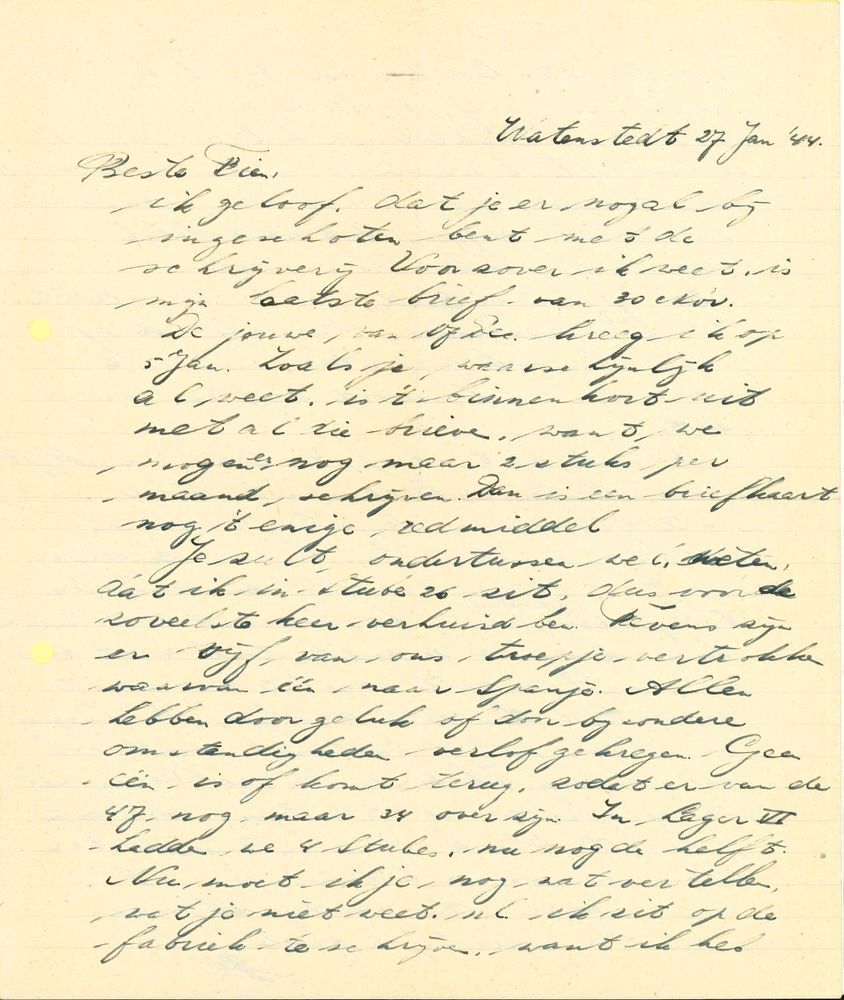 Watenstedt 27 Jan '44.
Beste Fien,
ik geloof, dat je er nogal bij
ingeschoten bent met de
schrijverij Voor zover ik weet, is
mijn laatste brief van 30
De jouwe van 17 Dec. kreeg ik op
5 Jan. Zoals je waarschijnlijk
al weet, is 't binnenkort uit
met al die brieve, want we
mogen er nog maar 2 stuks per
maand schrijven. Dan is een briefkaart
nog 't enige redmiddel
Je zult ondertussen wel weten,
dat ik in stube 26 zit, dus voor de
zoveelste keer verhuisd ben. Tevens zijn
er vijf van ons troepje vertrokke
waarvan één naar Spanje. Allen
hebben door geluk of door bijzondere
omstendigheden verlof gekregen. Geen
één is of komt terug, zodat er van de
47 nog maar 34 over zijn. In Lager III
hadde we 4 Stubes, nu nog de helft.
Nu moet ik je nog wat vertellen,
wat je niet weet. nl ik zit op de
fabriek te schrijve, want ik heb